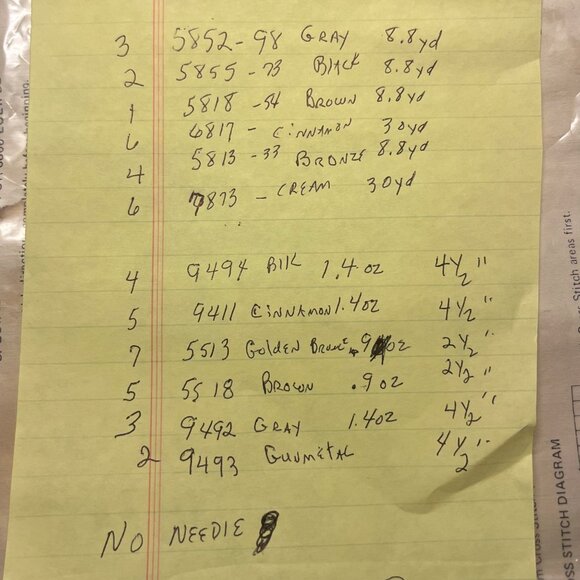 3 5852-98 GRAY 8.8yd
2 5855-73 BlACK 8.8yd
1 5818-54 BROWN 8.8yd
6 6817- CINNAMON 30yd
4 5813-33 BRONZE 8.8yd
6 7873- CREAM 30yd
4 9494 BlK 1.4 oz 4 1/2"
5 9411 CINNAMON 1.4oz 4 1/2"
7 5513 Golden .9 oz 2 1/2"
5 5518 BROWN .9 oz 2 1/2"
3 9492 GRAY 1.4oz 4 1/2"
2 9493 GUNMETAL 4 1/2"
NO NEEDlE
Stitch areas first.
SS STITCH DIAGRAM